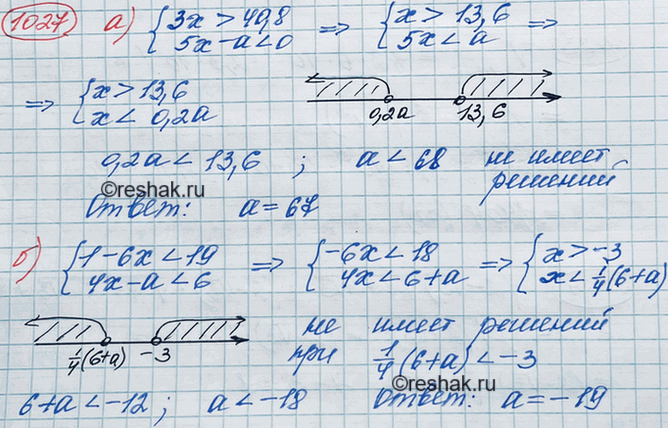 1027 а) {3x > 40,8 ⇒ {x > 13,6 ⇒
5x − a < 0 5x < a
⇒ {x > 13,6
x < 0,2a
0,2a 13,6
0,2a < 13,6 ; a < 68 не имеет
решений
©reshak.ru
Ответ: a = 67
б) {1 − 6x < 19 ⇒ {−6x < 18 ⇒ {x > −3
4x − a < 6 4x < 6 + a x < 1/4 (6 + a)
не имеет решений
1/4 (6+a) −3 при 1/4 (6 + a) < −3
©reshak.ru
6 + a < −12 ; a < −18 Ответ: a = −19